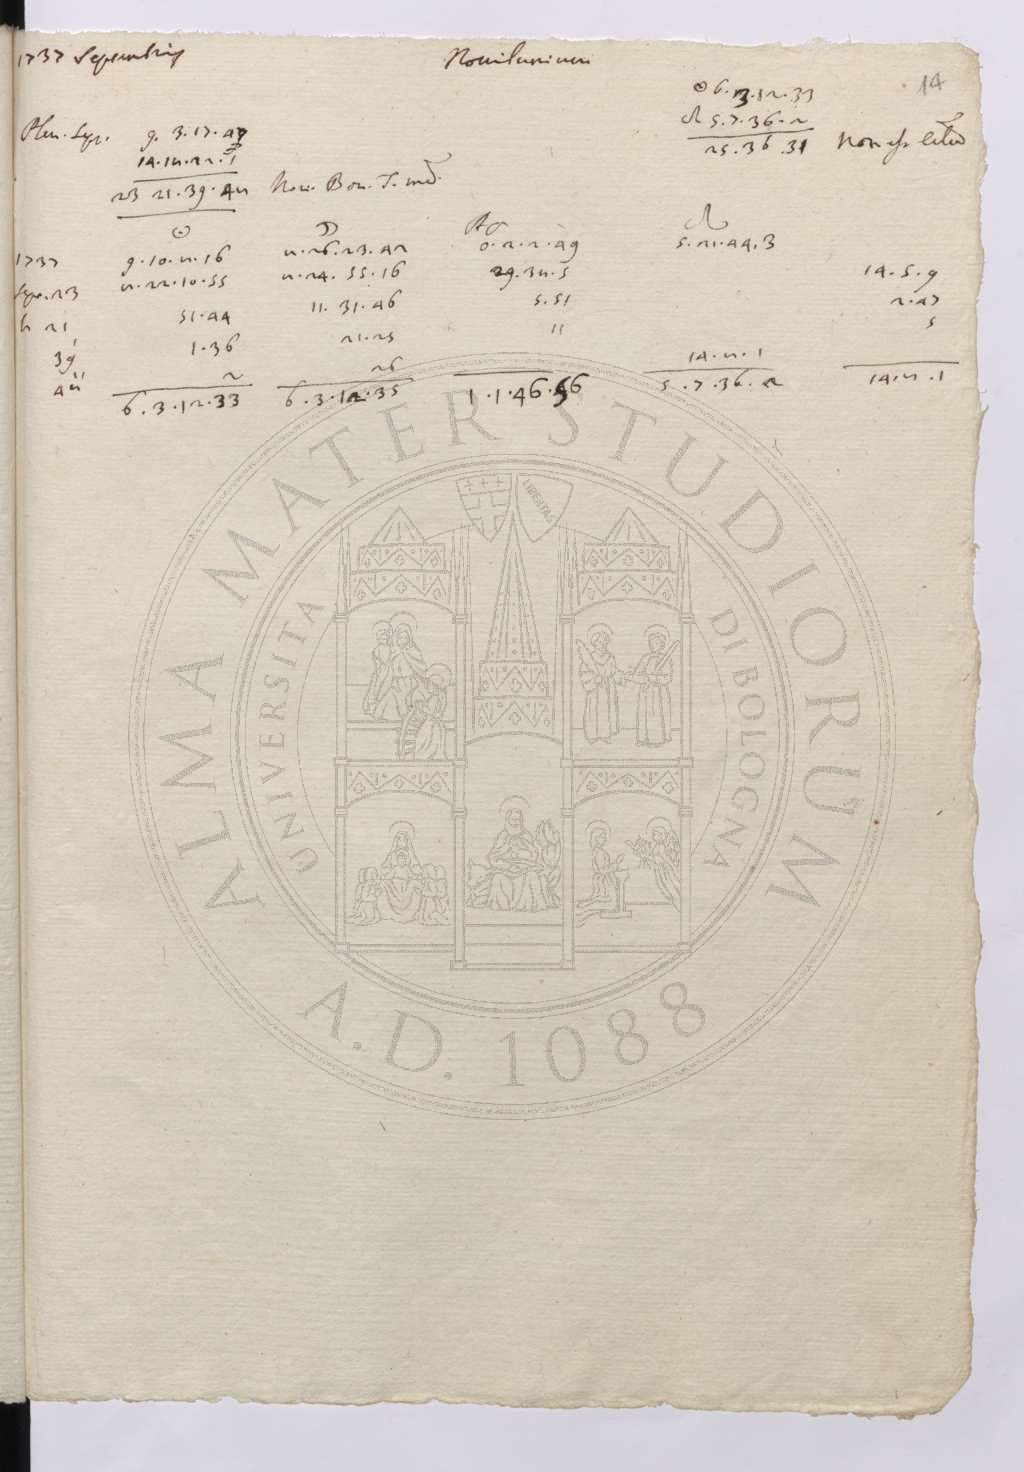 1737 Septembris Novilunium
14
☉ 6.3.12.33
☊ 5.7.36.2
25.36.31 Non est
Plen. Sep. 9. 3.17.47
14.
23 21.39.42 Nov. Bon. T. med.
☉ ☽ ☊
1737 9.10.11.16 11.26.23.42 0.2.2.49 5.21.44.3
Sep. 23 11.22.10.55 11.24.55.16 29.32.5 14.5.9
h 21 51.44 11.31.46 5.51 2.47
39 1.36 21.23 11 5
42 2 26 14.11.1
6.3.12.33 6.3.12.33 1.1.46.56 5.7.36.2 14.11.1
ALMA MATER STUDIORUM
UNIVERSITÀ DI BOLOGNA
LIBERTAS
A.D. 1088